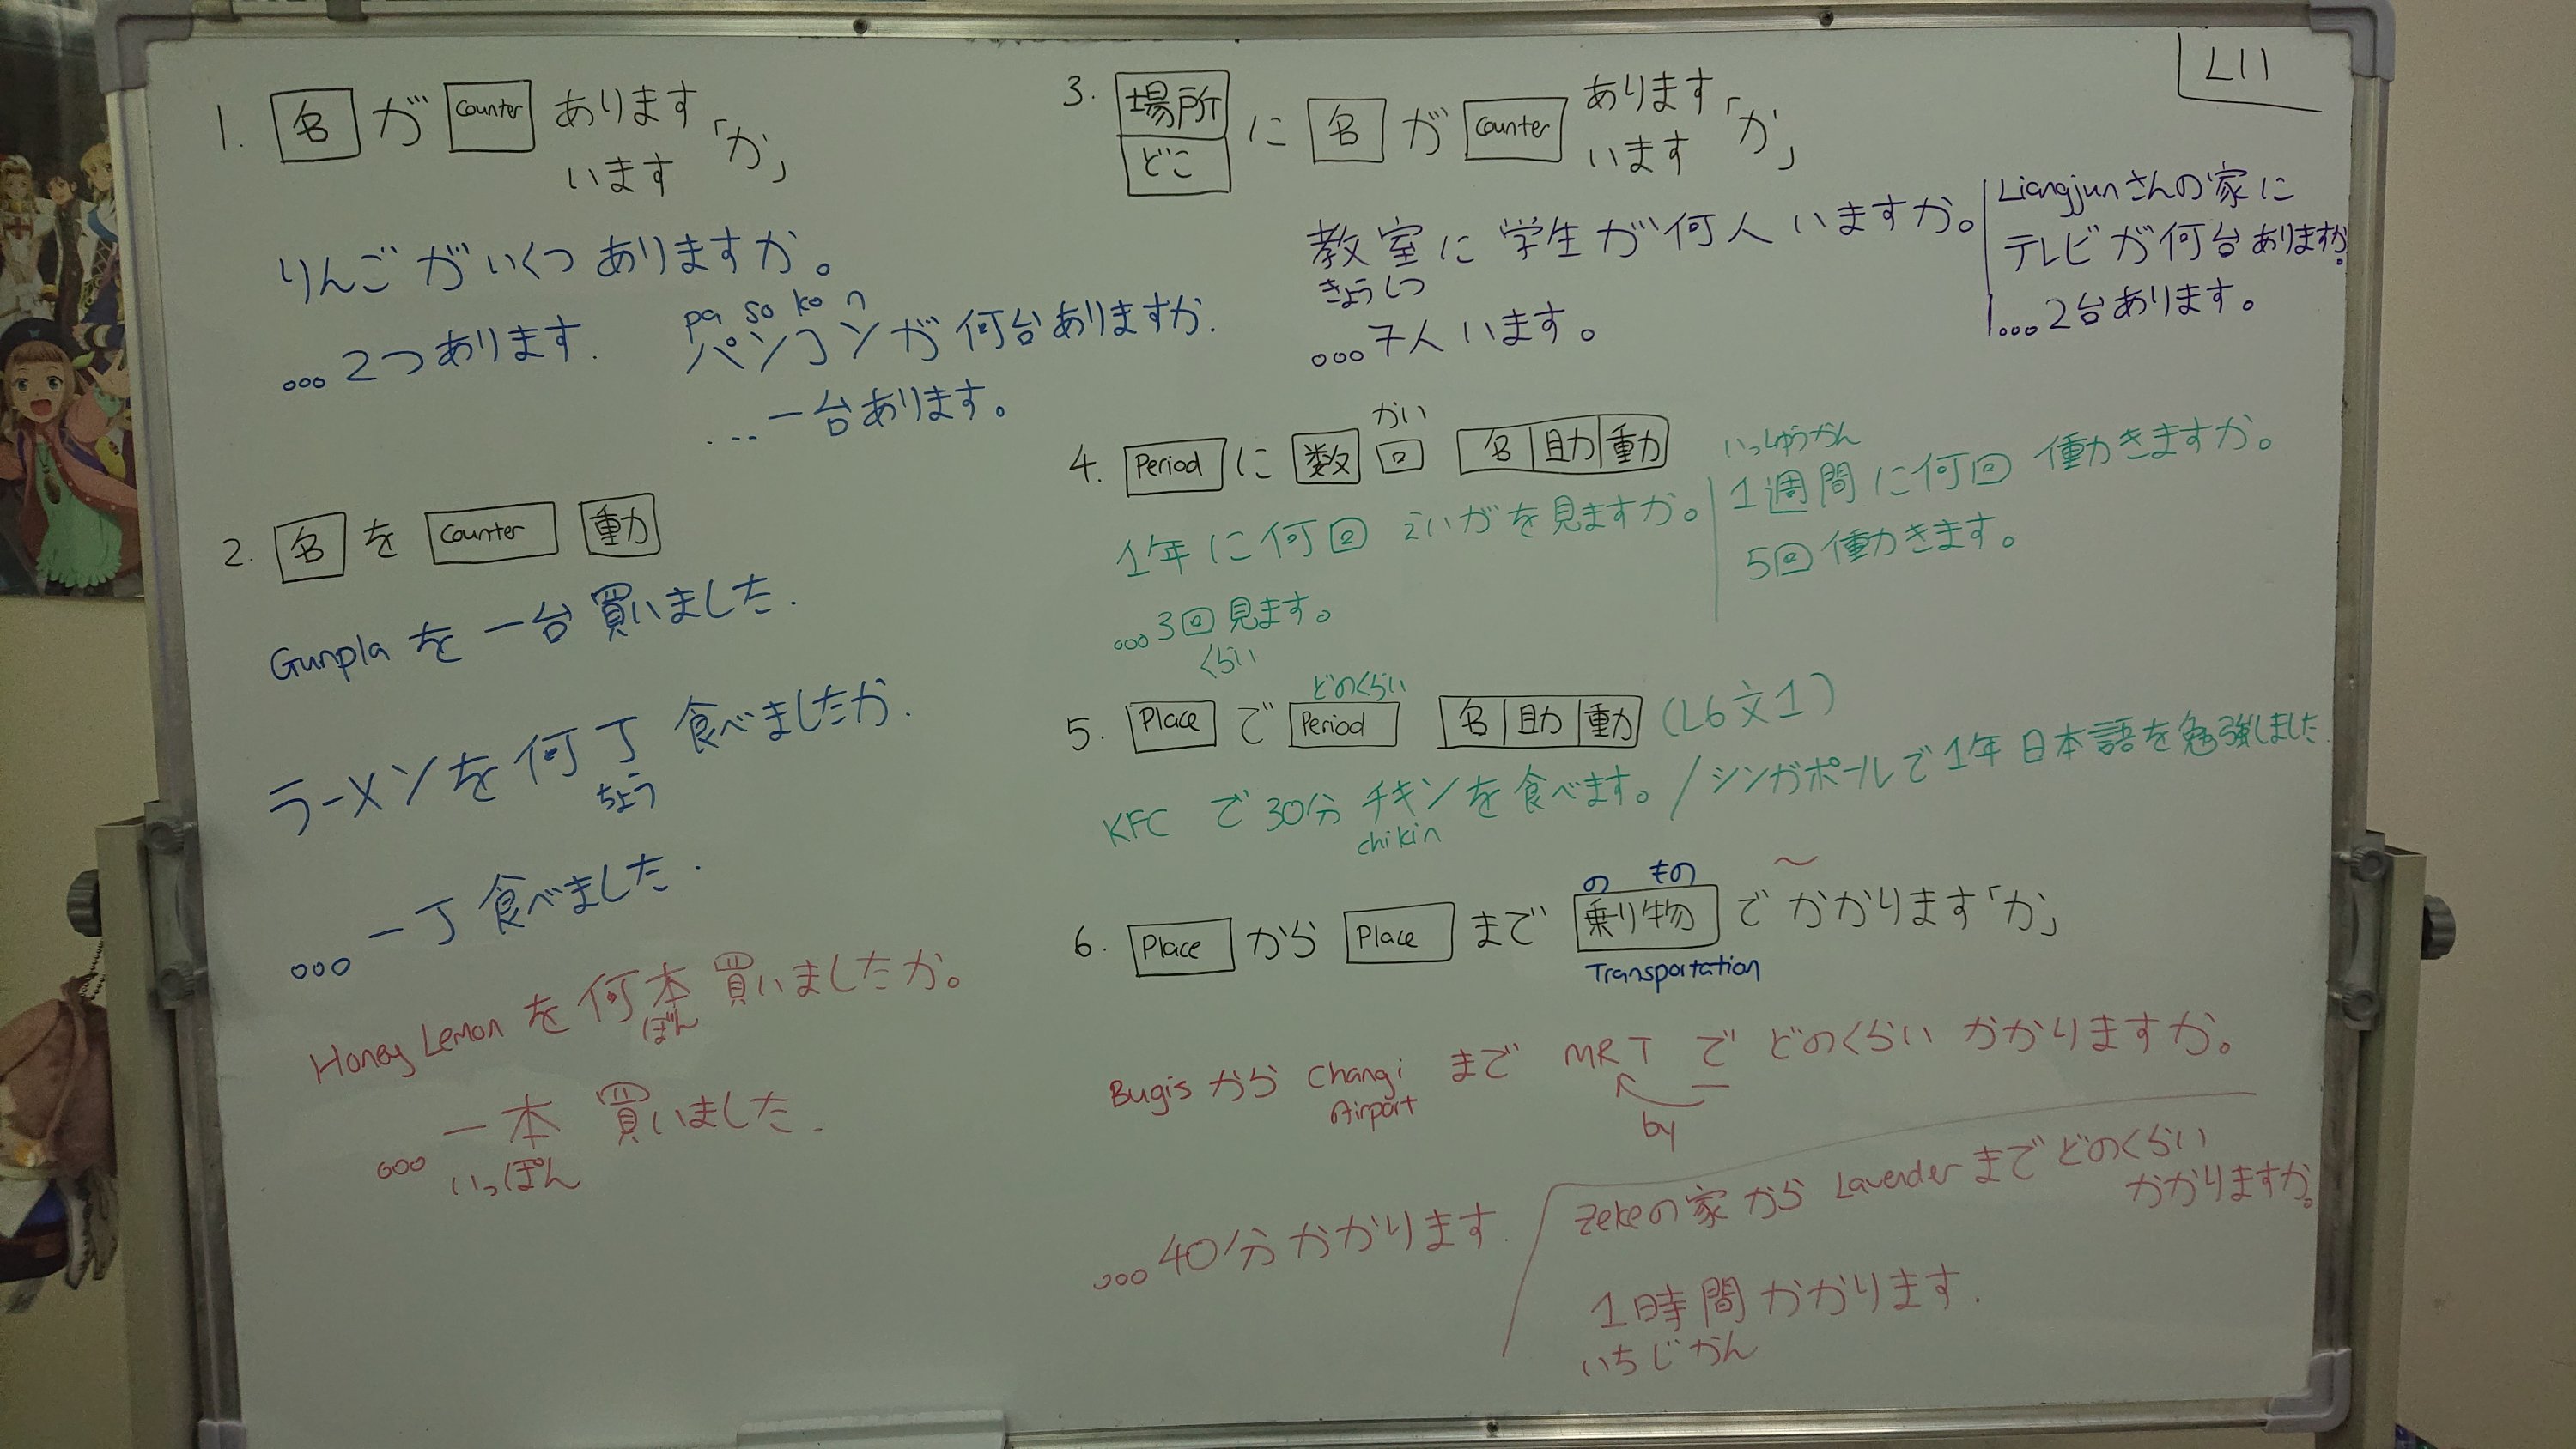 L11
1. 名 が Counter あります
います
「か」
りんごがいくつありますか。
...2つあります.
pa so ko n
パソコンが何台ありますか.
...一台あります。
2. 名 を Counter 動
Gunplaを一台買いました.
ラーメンを何丁食べましたか.
ちょう
...一丁食べました.
Honey Lemonを何本買いましたか。
ぼん
...一本買いました.
いっぽん
3. 場所 に 名 が Counter あります
どこ
います
「か」
教室に学生が何人いますか。
きょうしつ
...7人います。
Liangjunさんの家に
テレビが何台ありますか。
...2台あります。
かい
4. Period に 数 回 名 助 動
1年に何回えいがを見ますか。
...3回見ます。
くらい
いっしゅうかん
1週間に何回働きますか。
5回働きます。
どのくらい
5. Place で Period 名 助 動 (L6文1)
KFCで30分チキンを食べます。/シンガポールで1年日本語を勉強しました.
chikin
の もの 〜
6. Place から Place まで 乗り物 で かかります「か」
Transportation
Bugisから Changi まで MRT で どのくらいかかりますか。
Airport
by
...40分かかります.
Zekeの家から Lavenderまでどのくらい
かかりますか。
1時間かかります.
いちじかん